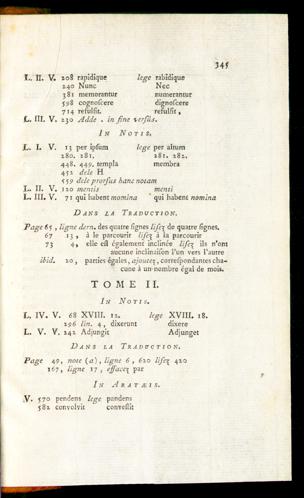 345
L. II. V. 208 rapidique lege rabidique
240 Nunc Nec
381 memorantur numerantur
598 cognoſcere dignoſcere
714 refulſit. refulſit,
L. III. V. 230 Adde . in fine verſus.
IN NOTIS.
L. I. V. 13 per ipſum lege per altum
280. 281. 281. 282.
448. 449. templa membra
452 dele H
559 dele prorſus hanc notam
L. II. V. 120 mentis menti
L. III. V. 71 qui habent momina qui habent nomina
DANS LA TRADUCTION.
Page 65, ligne dern. des quatre ſignes liſez de quatre ſignes.
67 13, à le parcourir liſez à la parcourir
73 4, elle eſt également inclinée liſez ils n'ont
aucune inclinaiſon l'un vers l'autre
ibid. 20, parties égales, ajoutez, correſpondantes cha-
cune à un nombre égal de mois.
TOME II.
IN NOTIS.
L. IV. V. 68 XVIII. 12. lege XVIII. 18.
296 lin. 4, dixerunt dixere
L. V. V. 242 Adjungit Adjunget
DANS LA TRADUCTION.
Page 49, note (a), ligne 6, 620 liſez 420
167, ligne 17, effacez par
IN ARATÆIS.
V. 570 pendens lege pandens
582 convolvit conveſtit